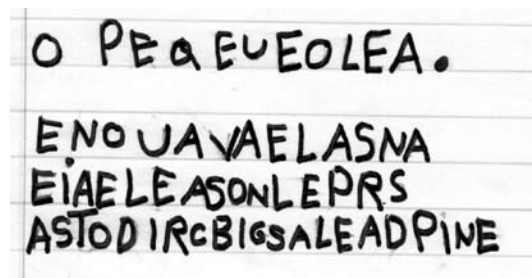 O PEQEUEOLEA.
ENOUAVAELASNA
EIAELEASONLEPRS
ASTODIRCBIGSALEADPINE